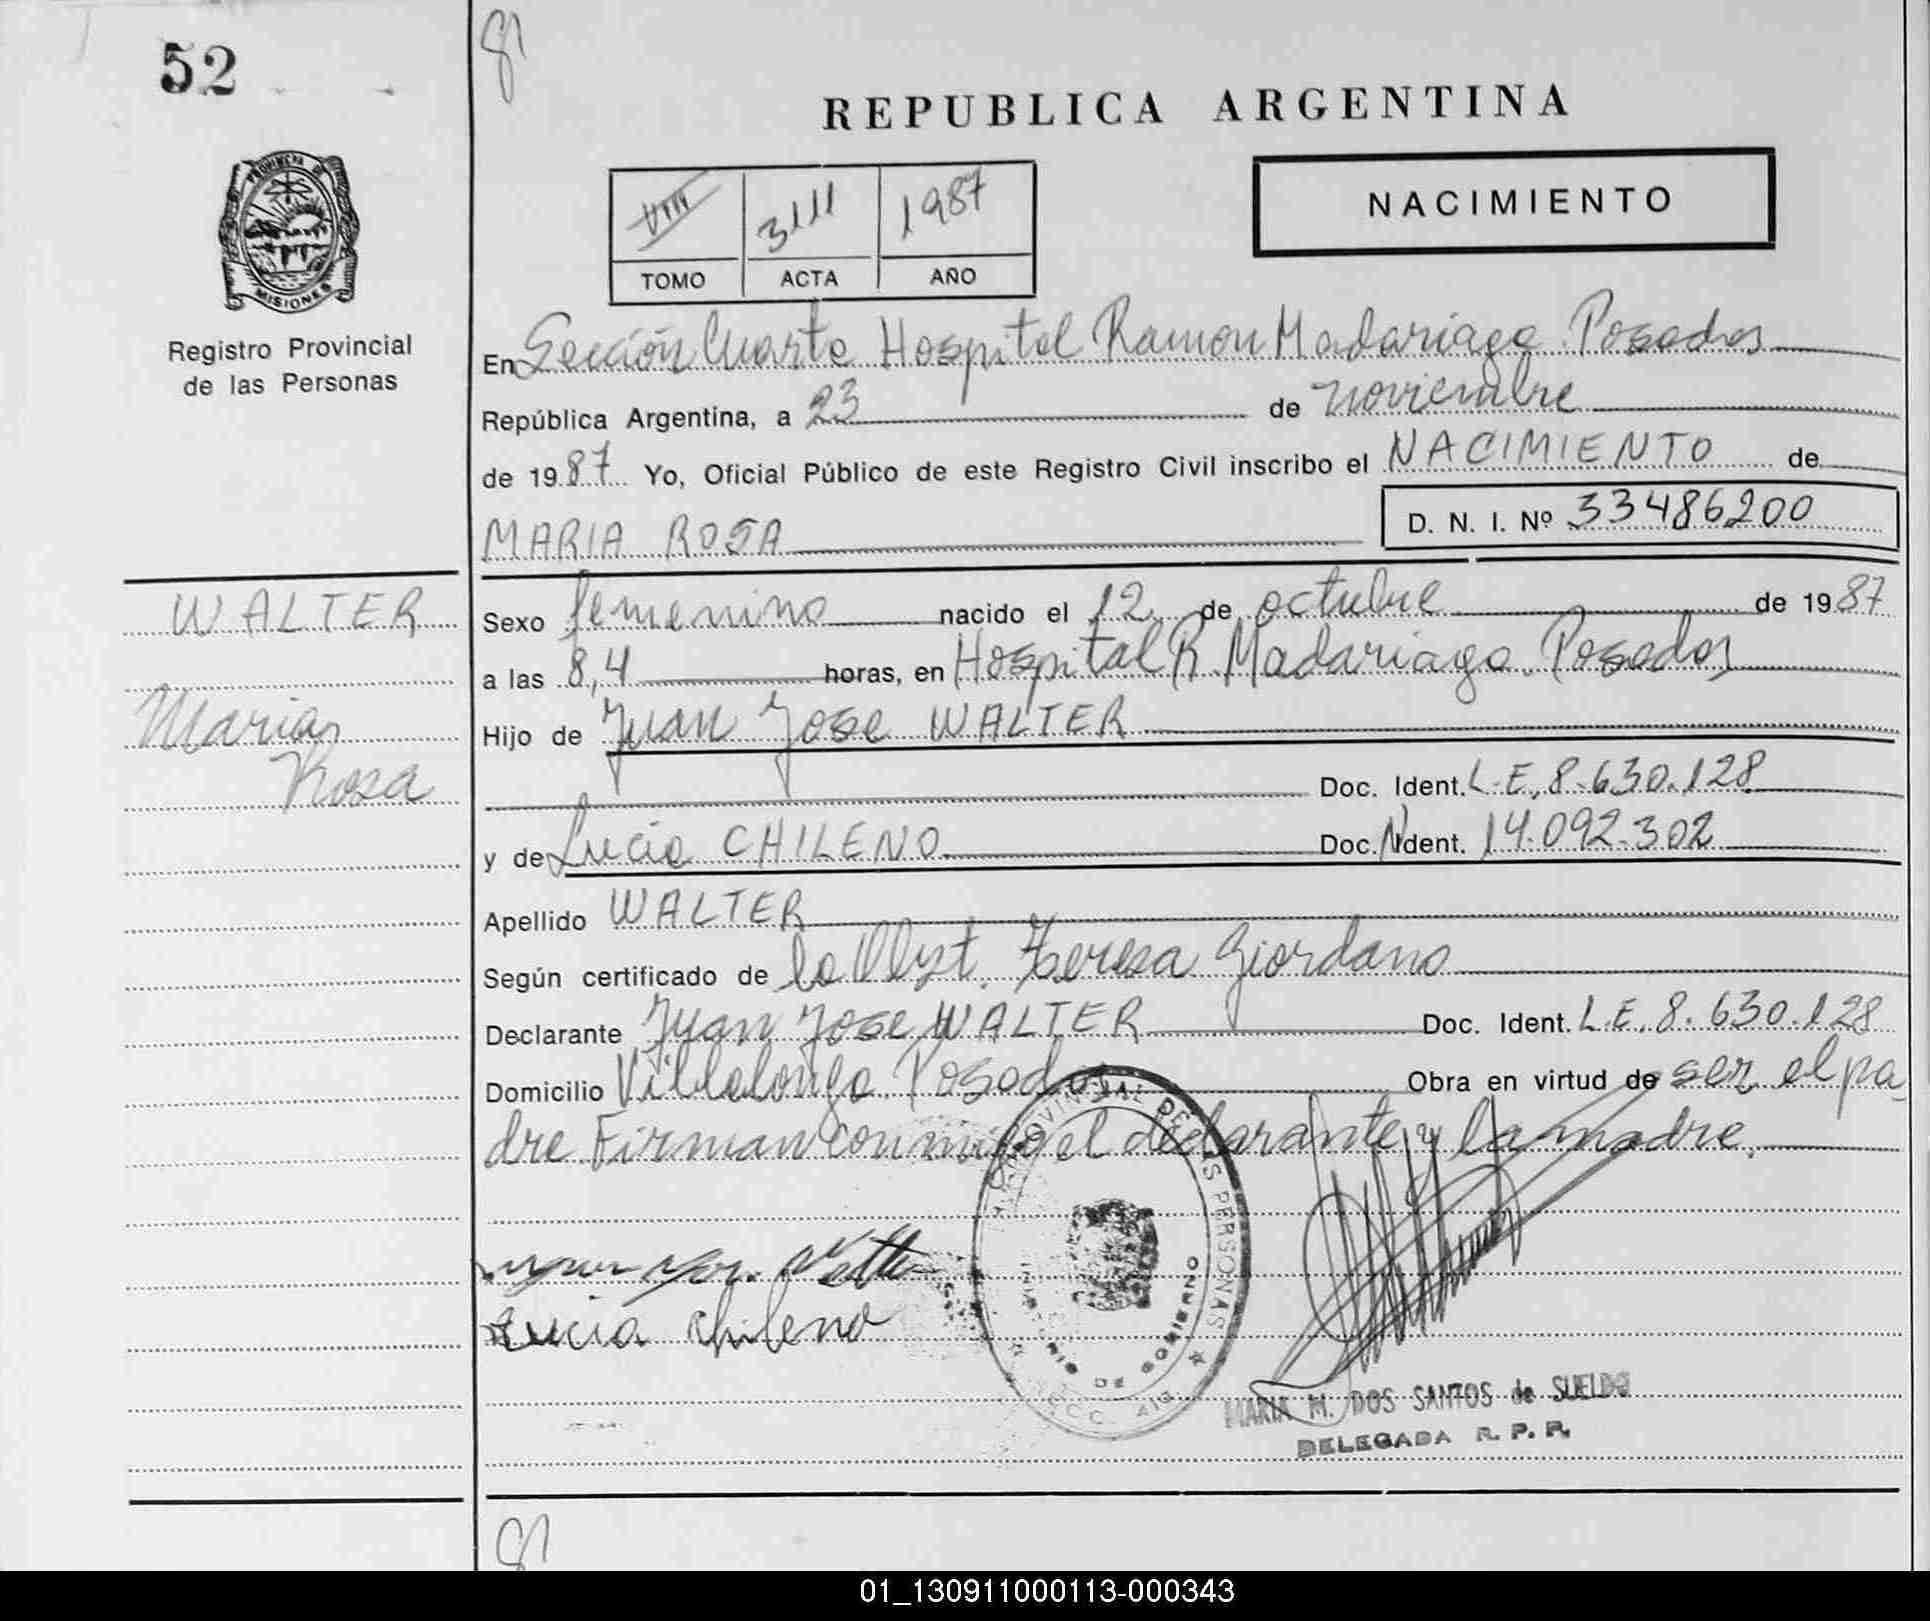 52
REPUBLICA ARGENTINA
VIII 3111 1987
TOMO ACTA AÑO
NACIMIENTO
PROVINCIA DE
MISIONES
Registro Provincial
de las Personas
En Sección Cuarta Hospital Ramon Madariaga. Posadas
República Argentina, a 23 de noviembre
de 1987 Yo, Oficial Público de este Registro Civil inscribo el NACIMIENTO de
MARIA ROSA
D. N. I. Nº 33486200
WALTER
Maria
Rosa
Sexo femenino nacido el 12 de octubre de 1987
a las 8,4 horas, en Hospital R. Madariaga. Posadas
Hijo de Juan Jose WALTER
Doc. Ident. L.E. 8.630.128
y de Lucia CHILENO Doc. Ident. 14.092.302
Apellido WALTER
Según certificado de la Obst. Teresa Giordano
Declarante Juan Jose WALTER Doc. Ident. L.E. 8.630.128
Domicilio Villalonga. Posadas Obra en virtud de ser el pa
dre Firman conmigo el declarante y la madre.
PROVINCIAL DE LAS PERSONAS
DE GOBIERNO
Lucia Chileno
MARIA M. DOS SANTOS de SUELDO
DELEGADA R. P. P.
01_130911000113-000343